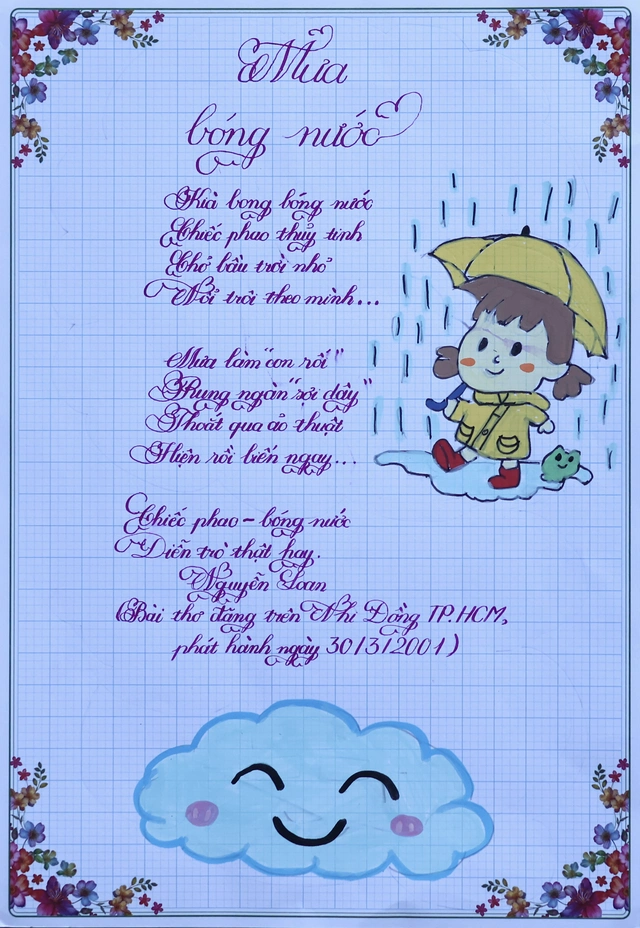 Mưa
bóng nước
Kìa bong bóng nước
Chiếc phao thủy tinh
Chở bầu trời nhỏ
Nổi trôi theo mình...
Mưa làm "con rối"
Rung ngàn "sợi dây"
Thoắt qua ảo thuật
Hiện rồi biến ngay...
Chiếc phao - bóng nước
Diễn trò thật hay.
Nguyễn Loan
(Bài thơ đăng trên Nhi Đồng TP.HCM,
phát hành ngày 30/3/2001)